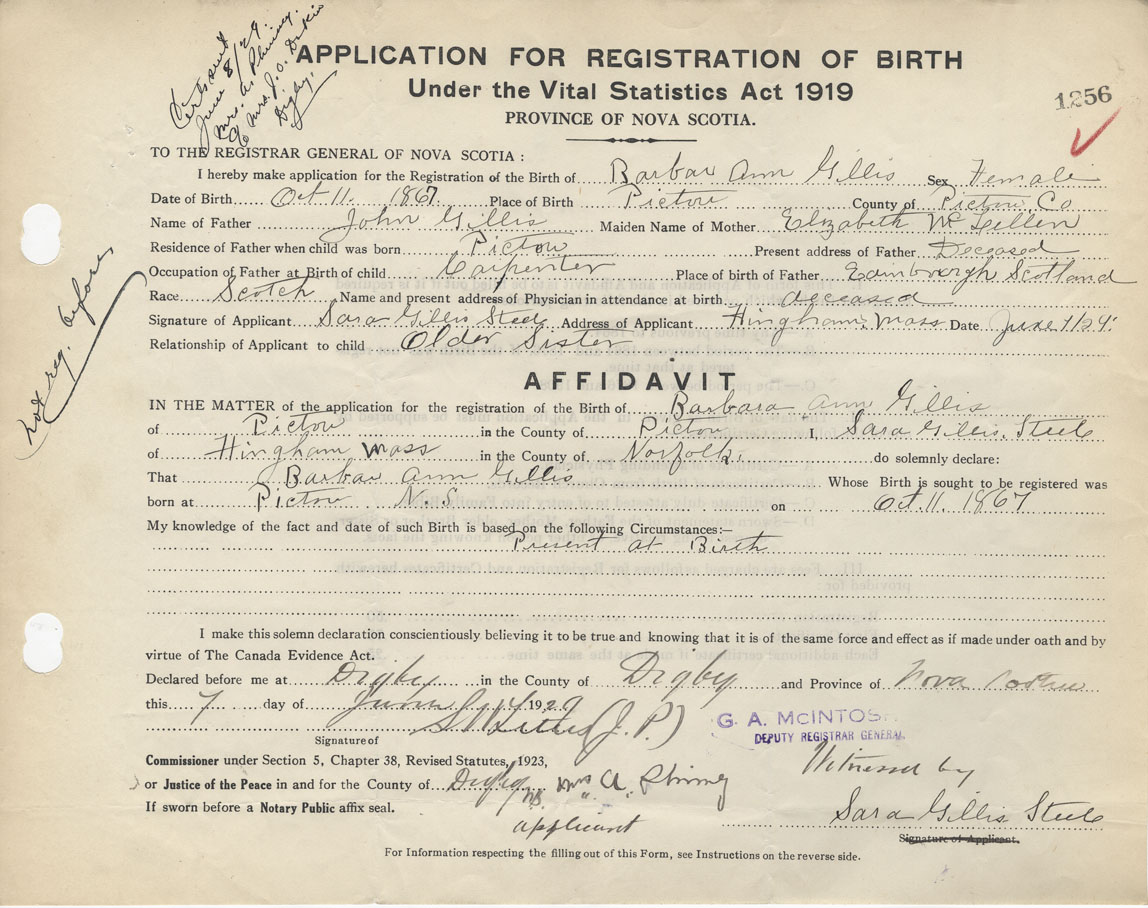 Cert sent
June 8/29.
Mrs. A. Phinney.
c/o Mrs J. O.
Digby.
APPLICATION FOR REGISTRATION OF BIRTH
Under the Vital Statistics Act 1919
1256
PROVINCE OF NOVA SCOTIA.
TO THE REGISTRAR GENERAL OF NOVA SCOTIA :
I hereby make application for the Registration of the Birth of Barbar Ann Gillis Sex Female
Date of Birth Oct 11. 1867 Place of Birth Pictou County of Pictou Co
Name of Father John Gillis Maiden Name of Mother Elizabeth McLellen
Residence of Father when child was born Pictou Present address of Father Deceased
Occupation of Father at Birth of child Carpenter Place of birth of Father Scotland
Race Scotch Name and present address of Physician in attendance at birth deceased
Signature of Applicant Sara Gillis Steele Address of Applicant Hingham, Mass Date June 7/29.
Relationship of Applicant to child Older Sister
not reg. before
AFFIDAVIT
IN THE MATTER of the application for the registration of the Birth of Barbara Ann Gillis
of Pictou in the County of Pictou I, Sara Gillis Steele
of Hingham Mass in the County of Norfolk. do solemnly declare:
That Barbar Ann Gillis Whose Birth is sought to be registered was
born at Pictou N.S. on Oct. 11. 1867
My knowledge of the fact and date of such Birth is based on the following Circumstances:—
Present at Birth
I make this solemn declaration conscientiously believing it to be true and knowing that it is of the same force and effect as if made under oath and by
virtue of The Canada Evidence Act.
Declared before me at Digby in the County of Digby and Province of Nova Scotia
this 7 day of June 1929
(J. P.)
G. A. McINTOSH
DEPUTY REGISTRAR GENERAL
Signature of
Commissioner under Section 5, Chapter 38, Revised Statutes, 1923,
or Justice of the Peace in and for the County of Digby
Mrs A. Phinney
applicant
Witnessed by
If sworn before a Notary Public affix seal.
Sara Gillis Steele
Signature of Applicant.
For Information respecting the filling out of this Form, see Instructions on the reverse side.